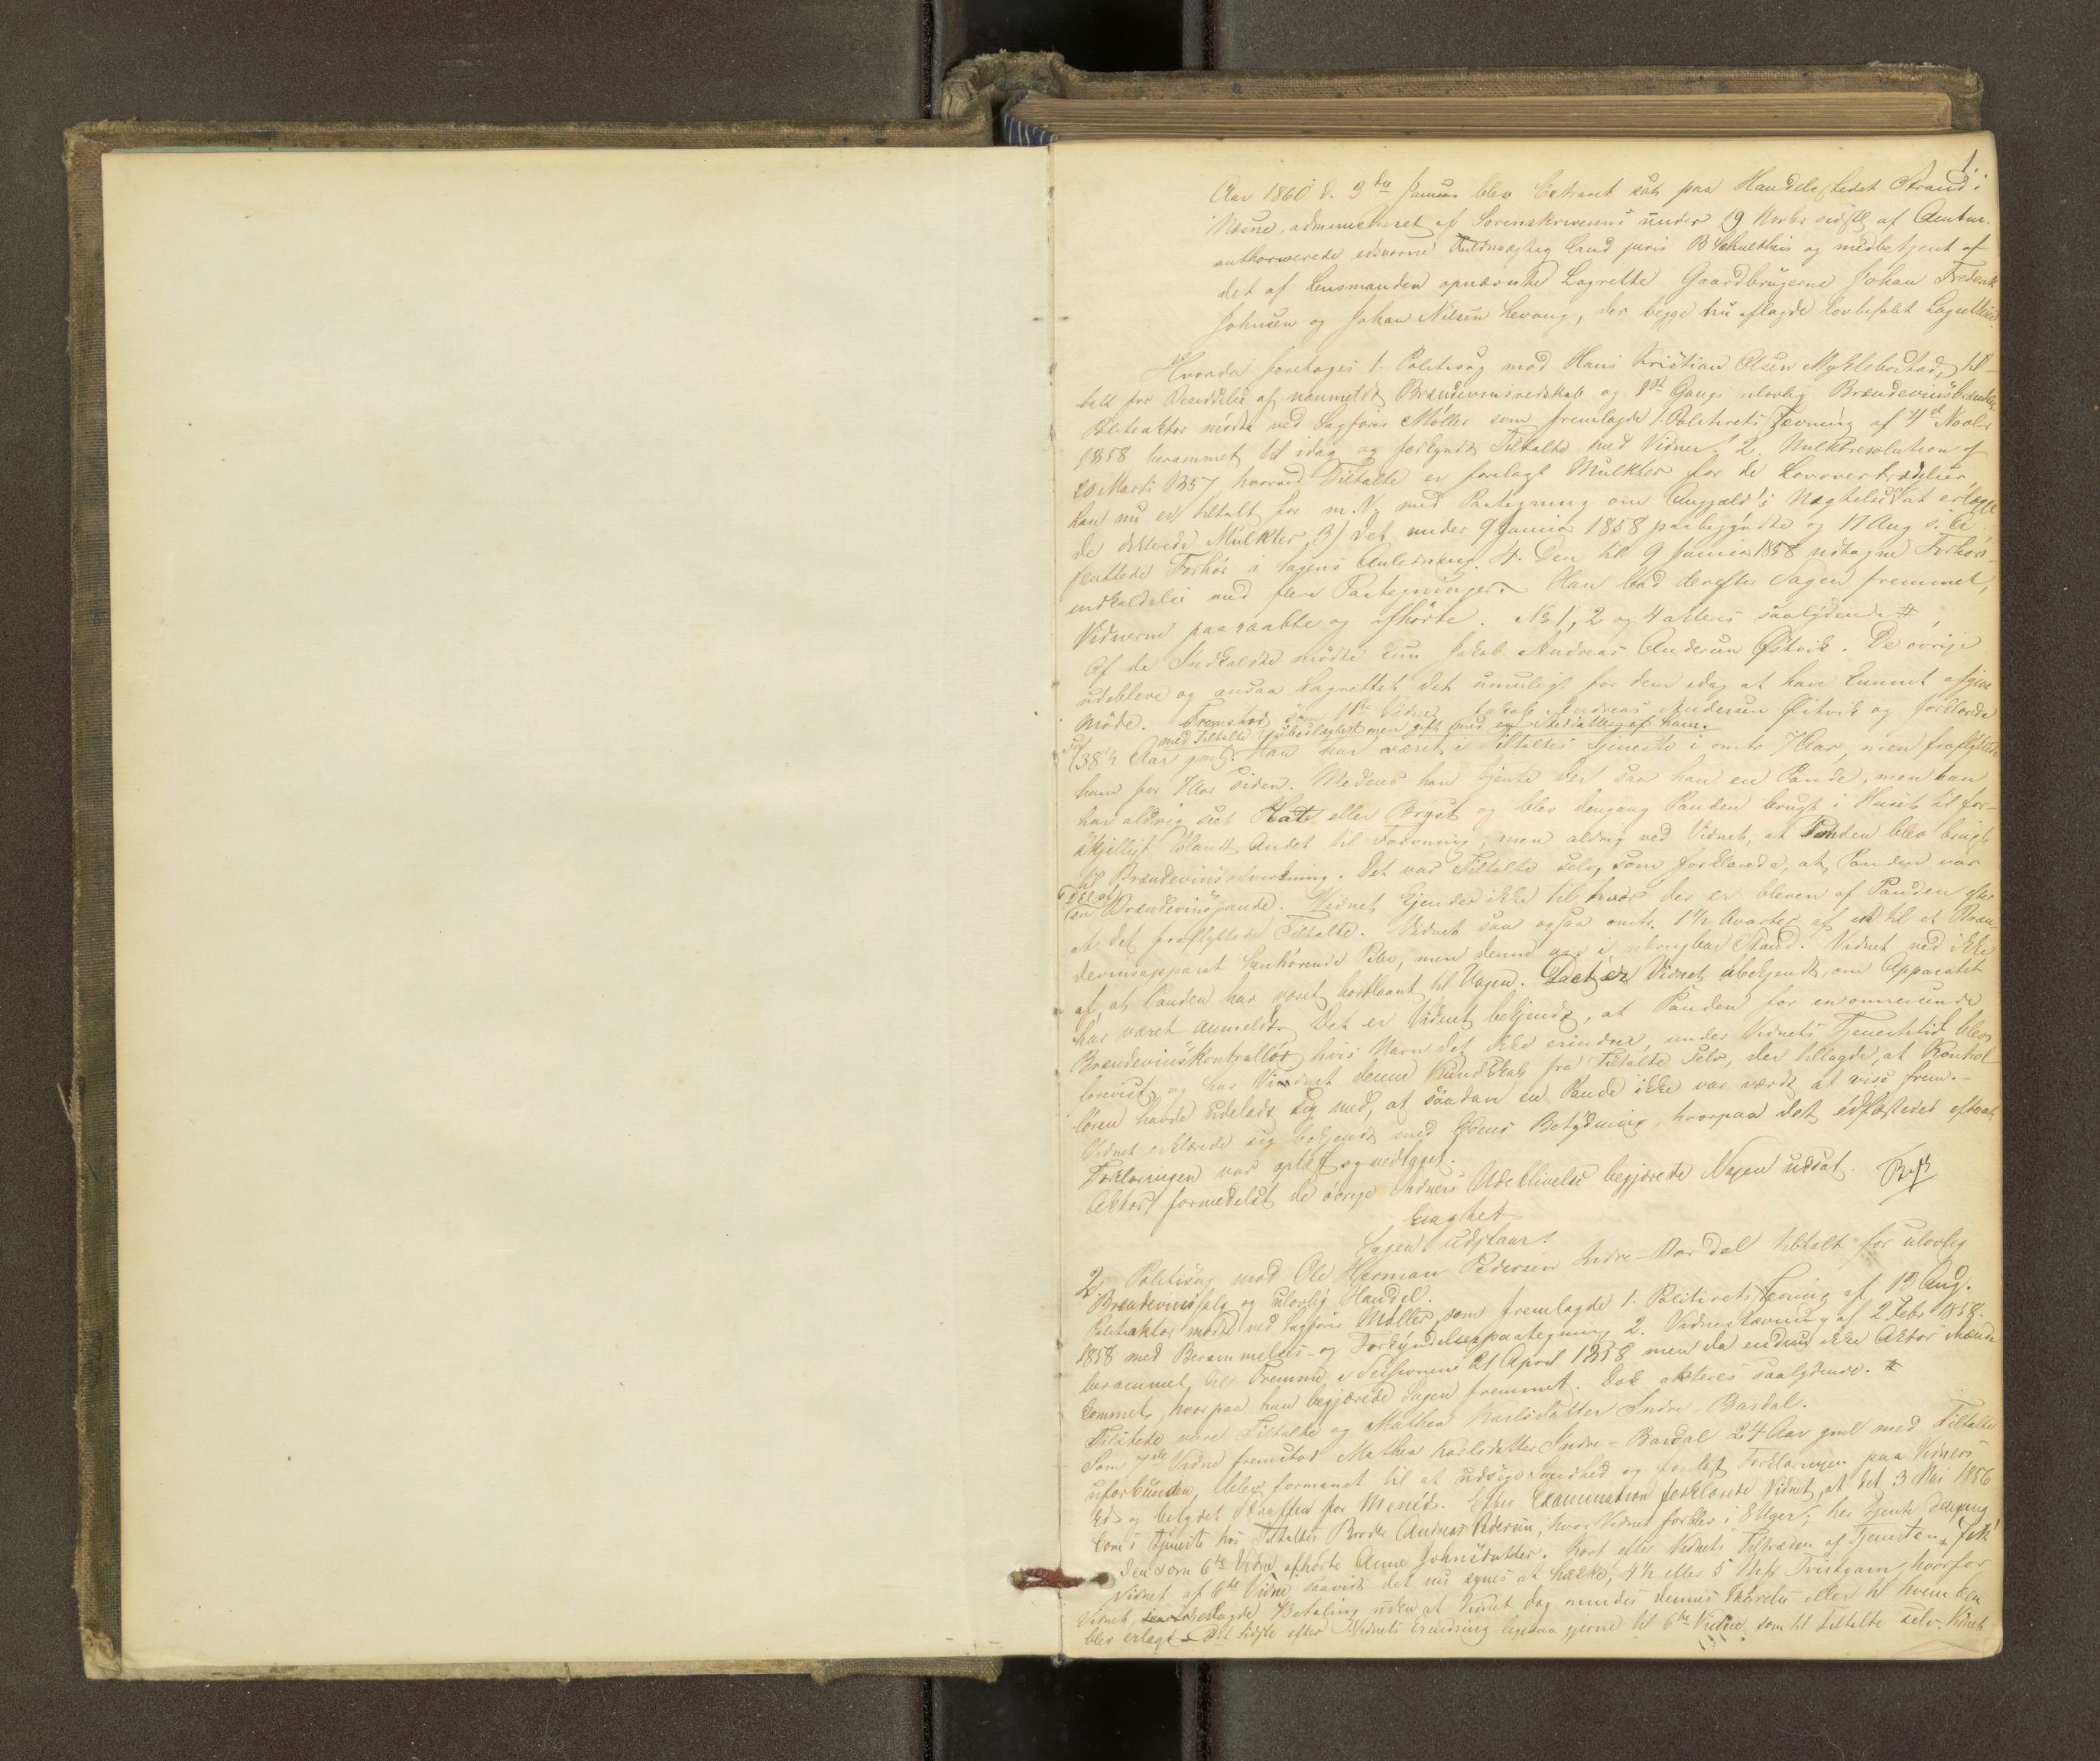 1.
Aar 1860 d. 3die Januar blev Extraret sat paa Handelsstedet Strand i
Næsne, administreret af Sorenskriverens under 19 Novbr sidstl. af Amtm.
authoriserede edsvorne Fuldmægtig Cand juris B Schulthis og medbetjent af
det af Lensmanden opnævnte Lagrette Gaardbrugerne Johan Frederik
Johnsen og Johan Nilsen Levang, der begge nu aflagde lovbefalet Lagrettesed.
Hvorda foretoges 1. Politisag mod Hans Kristian Olsen Myklebostad, til-
talt for Besiddelse af uanmeldt Brændevinsredskab og 1ste Gangs ulovlig Brændevinsbrænden.
Politiaktor mødte ved Sagfører Møller som fremlagde 1. Politirets Stævning af 4de Novbr
1858 berammet til idag og forkyndt Tiltalte med Vidner. 2. Mulktresolution af
20 Marts 1857 hvorved Tiltalte er forelagt Mulkter for de Lovovertrædelser
han nu er tiltalt for m. V. med Paategning om Angjæld's Nægtelse af at erlægge
de dikterede Mulkter, 3) Det under 9 Januar 1858 paabegyndte og 17 Aug s. A.
sluttede Forhør i Sagens Anledning. 4. Den til 9 Januar 1858 udtagne Forhørs-
indkaldelse med flere Paategninger. Han bad derefter Sagen fremmet,
Vidnerne paaraabte og afhørte. No 1, 2 og 4 akteres saalydende #
Af de Indkaldte mødte kun Jakob Andreas Andersen Østvik. De øvrige
udebleve og ansaa Lagrettet det umuligt for dem idag at have kunnet afgive
Møde. Fremstod som 1ste Vidne Jakob Andreas Andersen Østvik og forklarede
med Tiltalte ubeslægtet men gift med en af ham.
38½ Aar gml. Han har været i Tiltaltes Tjeneste i omtr 7 Aar, men fraflyttede
ham for 7 Aar siden. Medens han tjente der saa han en Pande, men han
har aldrig seet Hat eller Bryst og blev dengang Panden brugt i Huset til for-
skjelligt blandt Andet til Farvning, men aldrig ved Vidnet, at Panden blev brugt
til Brændevinstilvirkning. Det var Tiltalte selv, som forklarede, at Panden var
en Brændevinspande. Vidnet kjender ikke til hvor der er bleven af Panden efter
at det fraflyttede Tiltalte. Vidnet saa ogsaa omtr. 1½ Qvarter af en til et Bræn-
devinsapparat henhørende Pibe, men denne var i ubrugbar Stand. Vidnet ved ikke
af, at Panden har været bortlaant til Nogen. Det er Vidnet ubekjendt, om Apparatet
har været anmeldt. Det er Vidnet bekjendt, at Panden for en omreisende
Brændevinskontrollør, hvis Navn det ikke erindrer, under Vidnets Tjenestetid blev
forevist, og har Vidnet denne Kundskab fra Tiltalte selv, der tillagde, at Kontrol-
løren havde udeladt sig med, at saadan en Pande ikke var værdt at vise frem.-
Vidnet erklærede sig bekjendt med Edens Betydning, hvorpaa det edfæstedes efterat
Forklaringen var oplæst og vedtaget.
Aktor formedelst de øvrige Vidners Udeblivelse begjærede Sagen udsat.
Eragtet
Sagen udstaar.
2. Politisag mod Ole Herman Pedersen Indre-Bardal tiltalt for ulovlig
Brændevinssalg og ulovlig Handel.
Politiaktor mødte ved Sagfører Møller, som fremlagde 1. Politirets Stevning af 13 Aug.
1858 med Berammelses- og Forkyndelsespaategning, 2. Vidnestævning af 2 Febr 1858.
berammet til Fremme 21 April 1858 men da endnu ikke Aktor ihænde
kommet, hvorpaa han begjærede Sagen fremmet. Dok akteres saalydende. #
Tilstede vare Tiltalte og Mathea Karlsdatter Indre-Bardal.
Som 7de Vidne fremstod Mathea Karlsdatter Indre-Bardal 24 Aar gml med Tiltalte
uforbunden, blev formanet til at udsige Sandhed og forelæst Forklaringen paa Vidners
Ed og betydet Straffen for Meneed. Efter Examination forklarede Vidnet, at det 3 Mai 1856
kom i Tjeneste hos Tiltaltes Broder Andreas Pedersen, hvor Vidnet forblev i 8 Uger; her tjente dengang
den som 6te Vidne afhørte Anne Johnsdatter. Kort efter Vidnets Tiltræden af Tjenesten fik
Vidnet af 6te Vidne, saavidt det nu synes at huske, 4½ eller 5 Mk Tvistgarn, hvorfor
Vidnet erlagde Betaling uden at Vidnet dog mindes dennes Størrelse eller til hvem den
blev erlagt. Det Sidste efter Vidnets Erindring ligesaa gjerne til 6te Vidne som til Tiltalte selv. Vidnet